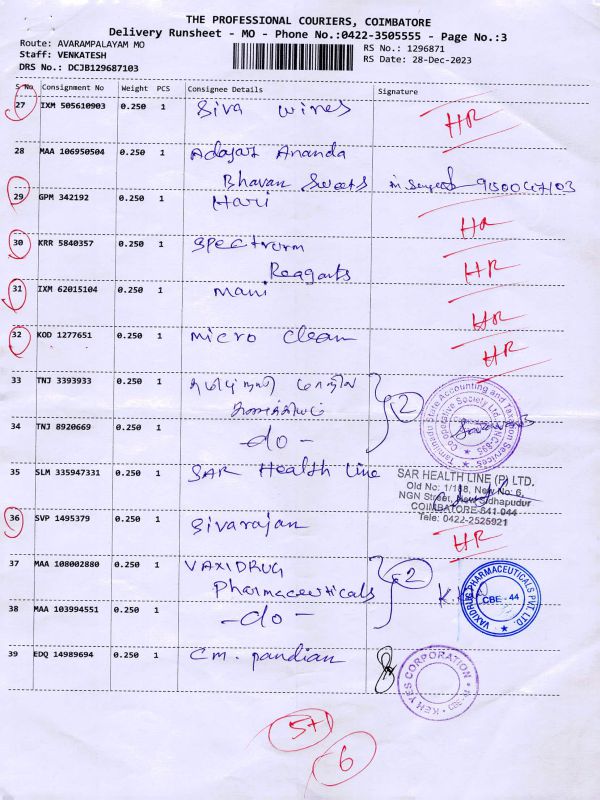 THE PROFESSIONAL COURIERS, COIMBATORE
Delivery Runsheet - MO - Phone No.:0422-3505555 - Page No.:3
Route: AVARAMPALAYAM MO
RS No.: 1296871
Staff: VENKATESH
RS Date: 28-Dec-2023
DRS No.: DCJB129687103
S No Consignment No Weight PCS Consignee Details Signature
27 IXM 505610903 0.250 1 Siva wines HR
28 MAA 106950504 0.250 1 Adayar Ananda
Bhavan Sweets
29 GPM 342192 0.250 1 Hari HR
30 KRR 5840357 0.250 1 Spectrum HR
Reagents
31 IXM 62015104 0.250 1 Mani HR
32 KOD 1277651 0.250 1 micro clean HR
33 TNJ 3393933 0.250 1
2
34 TNJ 8920669 0.250 1 -do-
Tamilnadu State Accounting and Taxation Services
Co-operative Society Ltd.
35 SLM 335947331 0.250 1 SAR Health Line
SAR HEALTH LINE (P) LTD.
Old No: 1/188, New No: 6,
NGN Street, New Sidhapudur
COIMBATORE-641 044
Tele: 0422-2525921
36 SVP 1495379 0.250 1 Sivarajan HR
37 MAA 108002880 0.250 1 VAXIDRUG
Pharmaceuticals
2
38 MAA 103994551 0.250 1 -do-
VAXIDRUG PHARMACEUTICALS PVT. LTD.
CBE - 44
39 EDQ 14989694 0.250 1 C.M. pandian
KEN YES CORPORATION
5+1
6